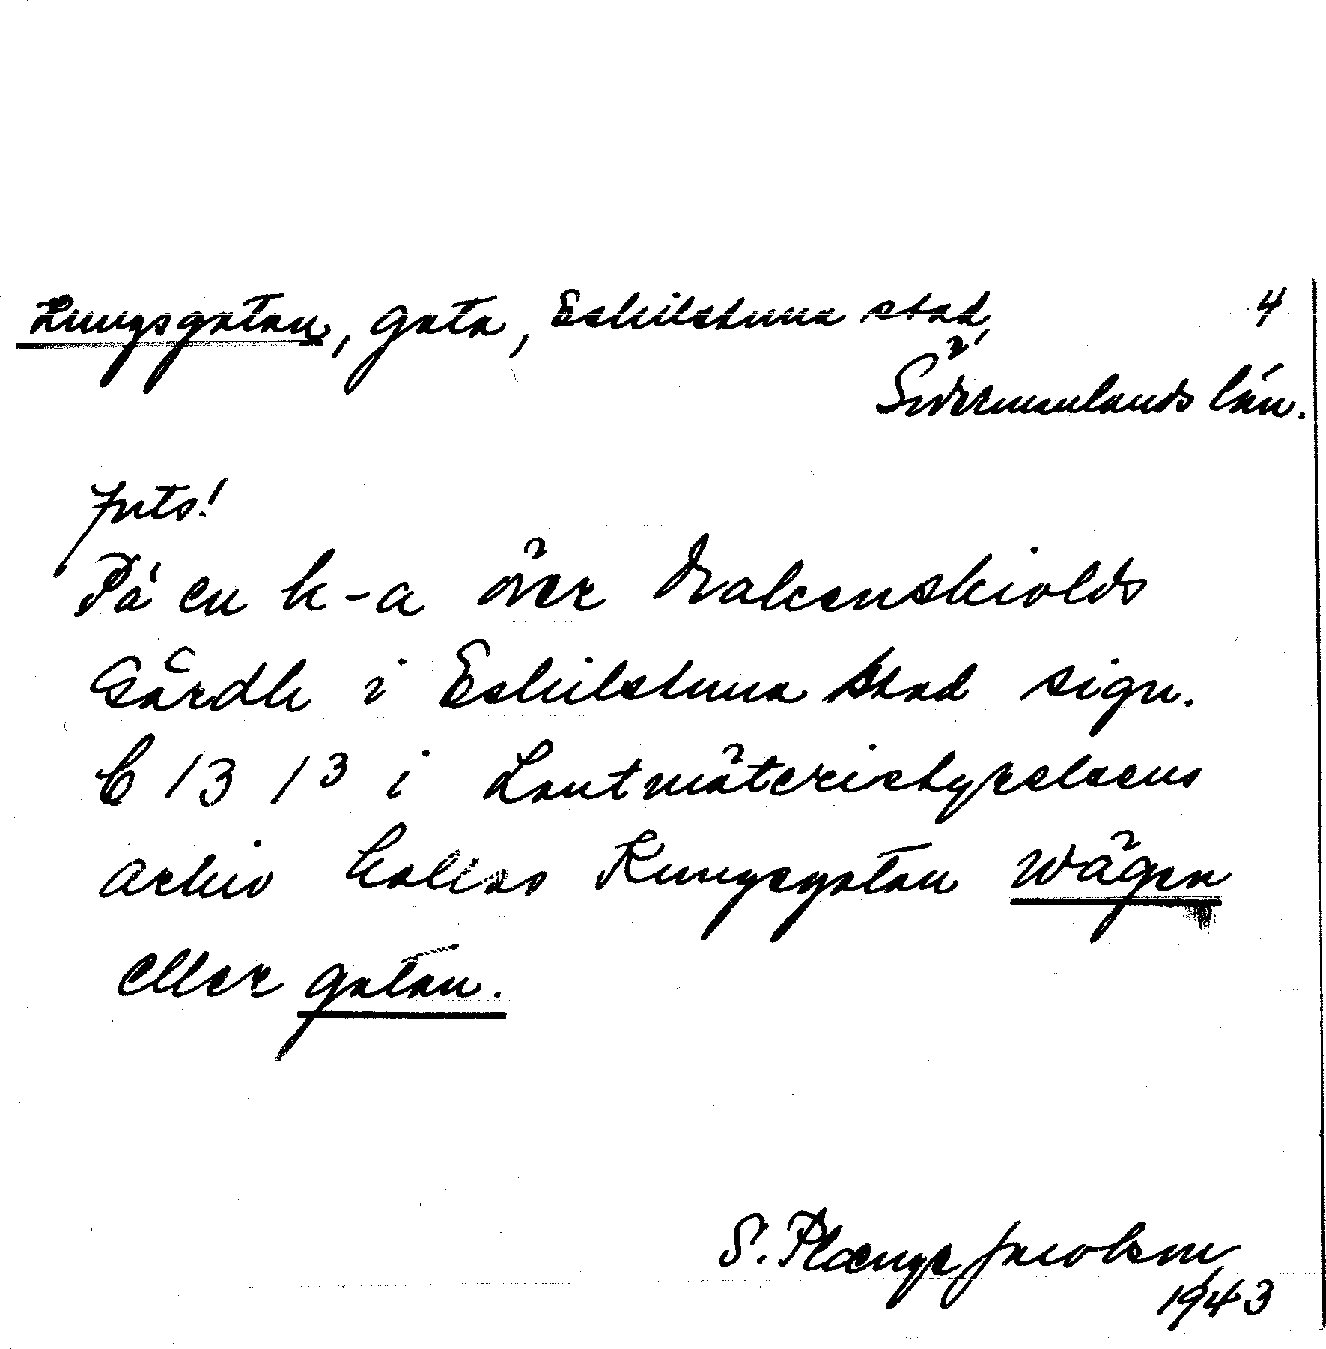 Kungsgatan, gata, Eskilstuna stad, 4
Södermanlands län.
forts!
På en k-a över Drakenskiolds
Gårdh i Eskilstuna Stad sign.
C 13 1³ i Lantmäteristyrelsens
arkiv kallas Kungsgatan Wägen
eller gatan.
S. Plænge Jacobson
1943